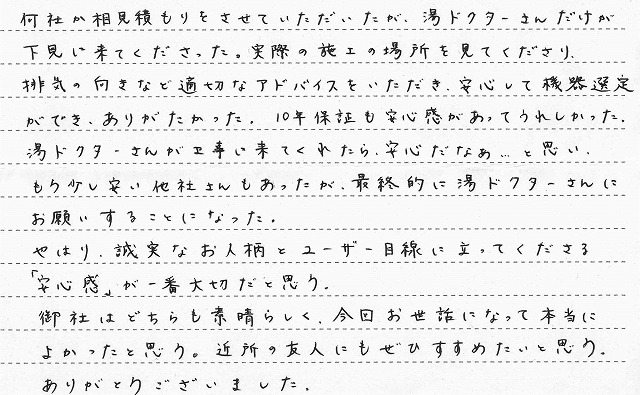 何社か相見積もりをさせていただいたが、湯ドクターさんだけが
下見に来てくださった。実際の施工の場所を見てくださり、
排気の向きなど適切なアドバイスをいただき、安心して機器選定
ができ、ありがたかった。10年保証も安心感があってうれしかった。
湯ドクターさんが工事に来てくれたら、安心だなぁ…と思い、
もう少し安い他社さんもあったが、最終的に湯ドクターさんに
お願いすることになった。
やはり、誠実なお人柄とユーザー目線に立ってくださる
「安心感」が一番大切だと思う。
御社はどちらも素晴らしく、今回お世話になって本当に
よかったと思う。近所の友人にもぜひすすめたいと思う。
ありがとうございました。